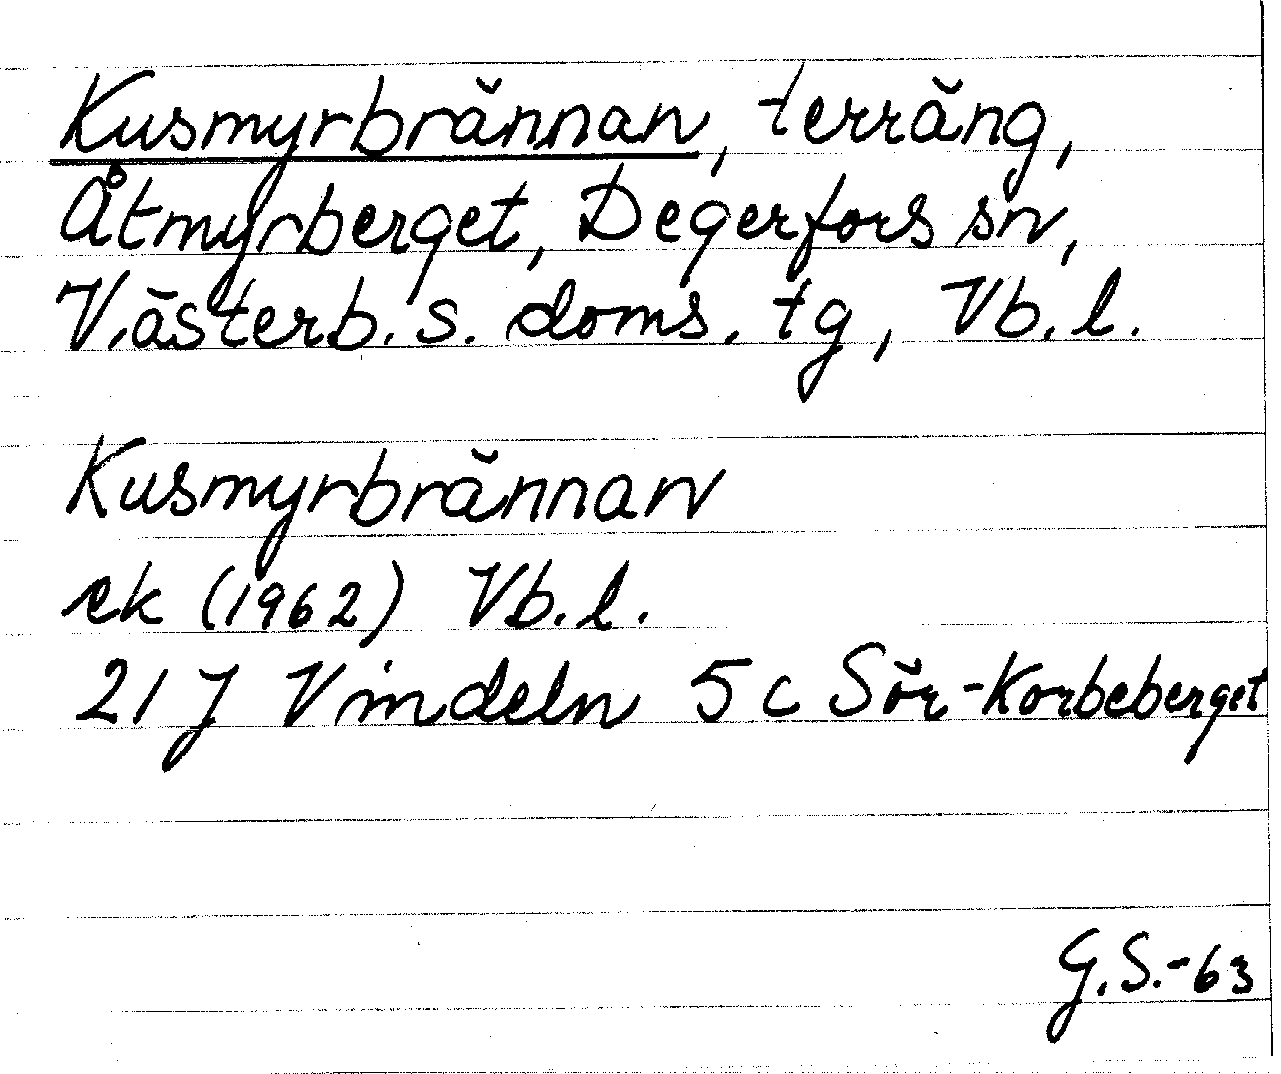 Kusmyrbrännan, terräng,
Åtmyrberget, Degerfors sn,
Västerb. s. doms. tg, Vb. l.
Kusmyrbrännan
ek (1962) Vb. l.
21 J Vindeln 5 c Sör-Korbeberget
G.S.-63